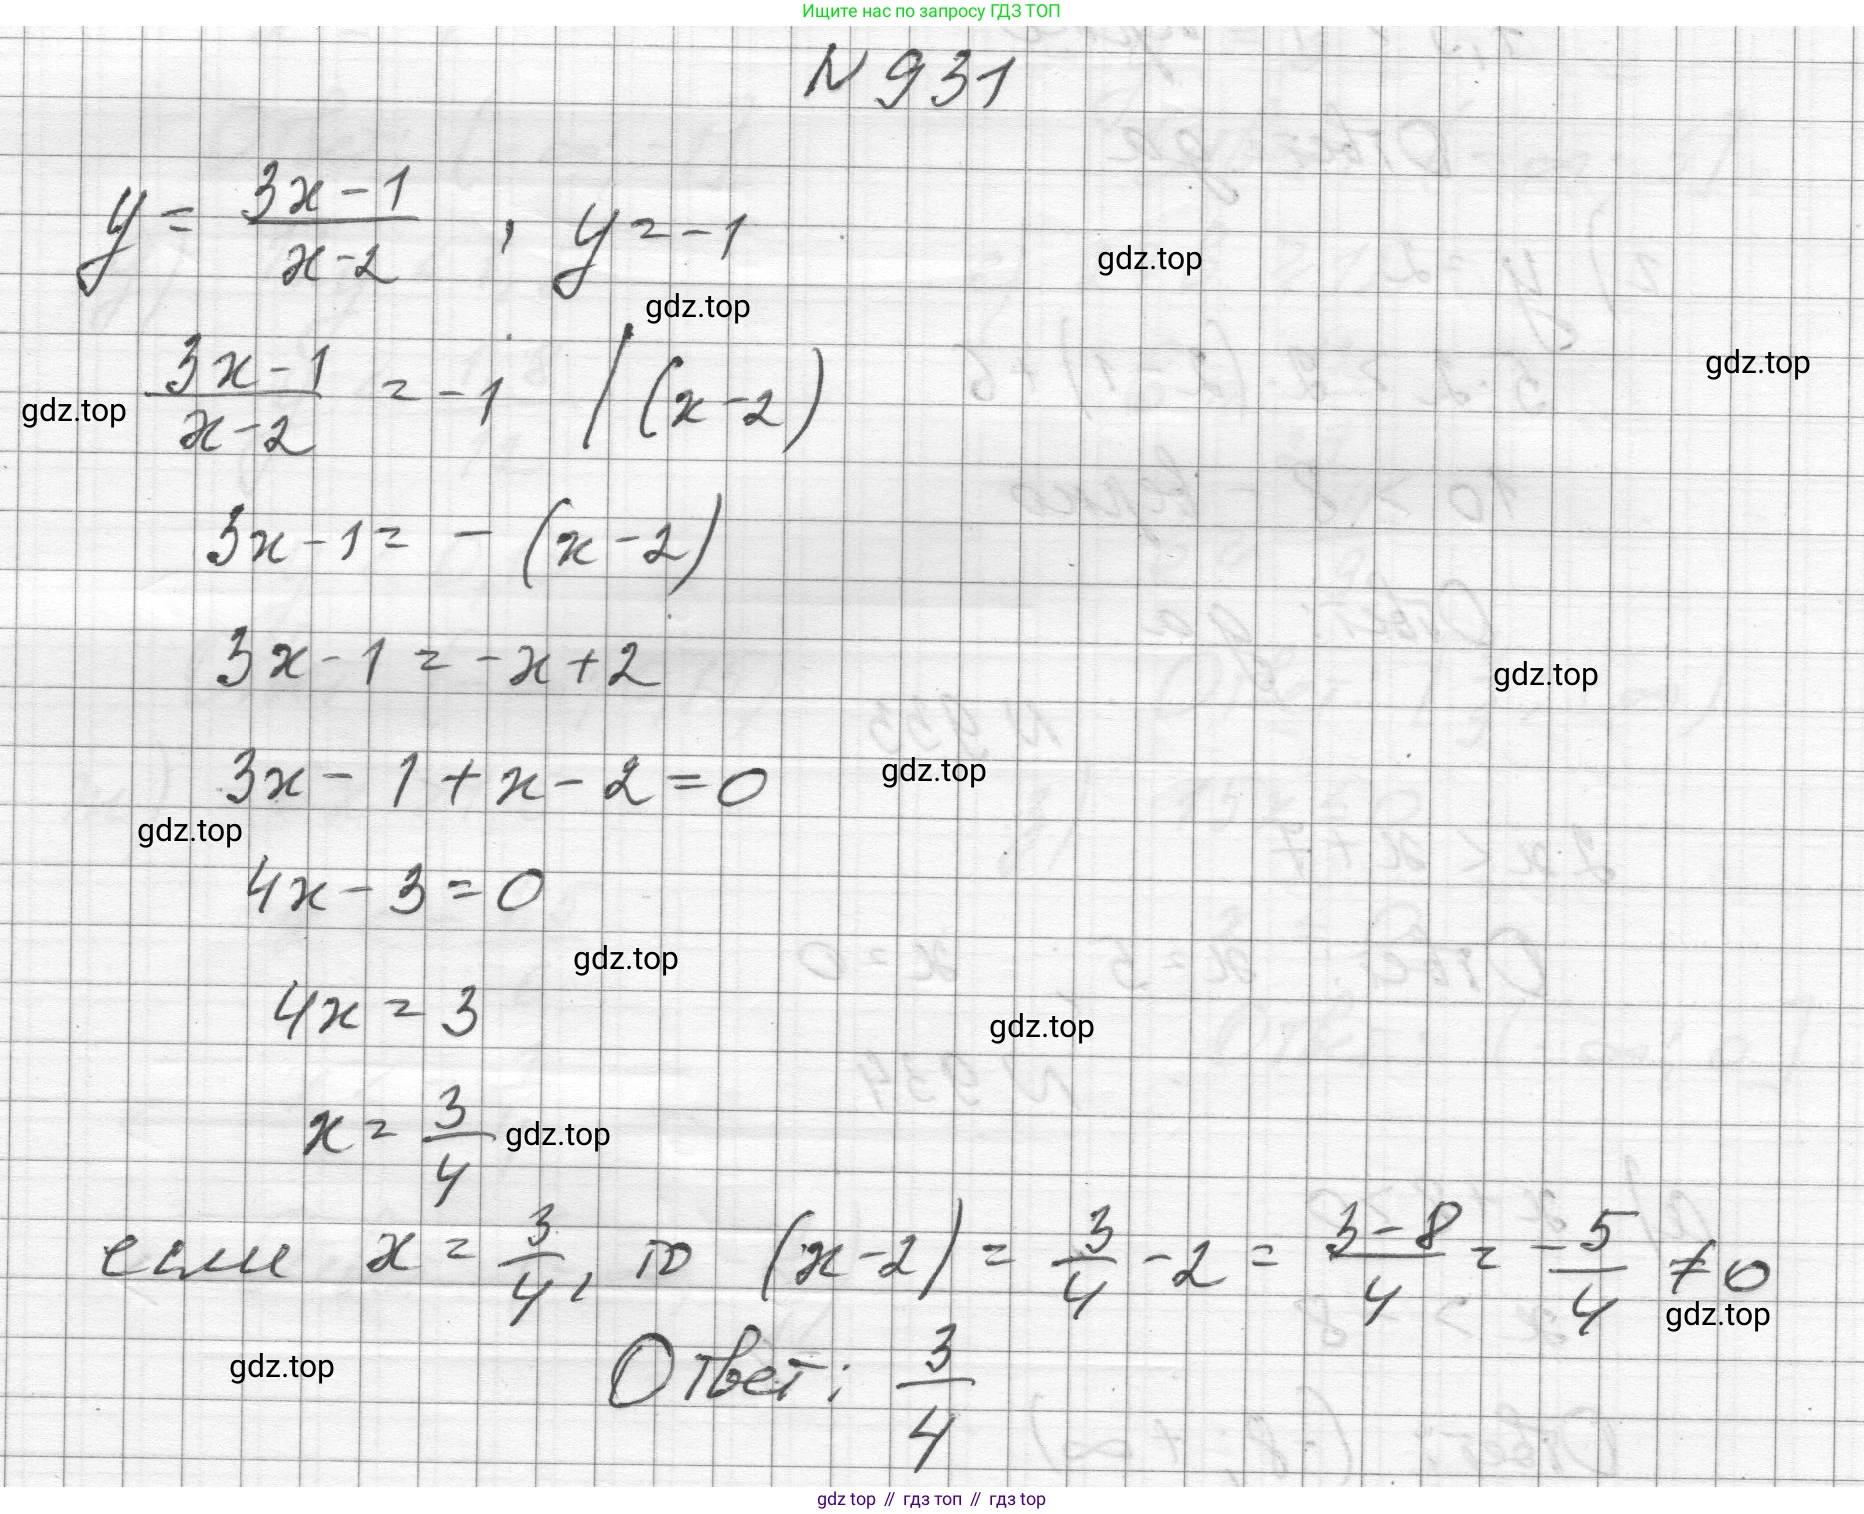 Ищите нас по запросу ГДЗ ТОП
N 931
y = (3x-1)/(x-2) , y = -1
gdz.top
gdz.top
gdz.top
(3x-1)/(x-2) = -1 | (x-2)
gdz.top
3x-1 = - (x-2)
3x-1 = -x+2
gdz.top
3x - 1 + x - 2 = 0
gdz.top
gdz.top
4x - 3 = 0
gdz.top
4x = 3
gdz.top
x = 3/4
gdz.top
если x = 3/4, то (x-2) = 3/4 - 2 = (3-8)/4 = -5/4 ≠ 0
gdz.top
gdz.top
Ответ: 3/4
gdz top // гдз топ // гдз top